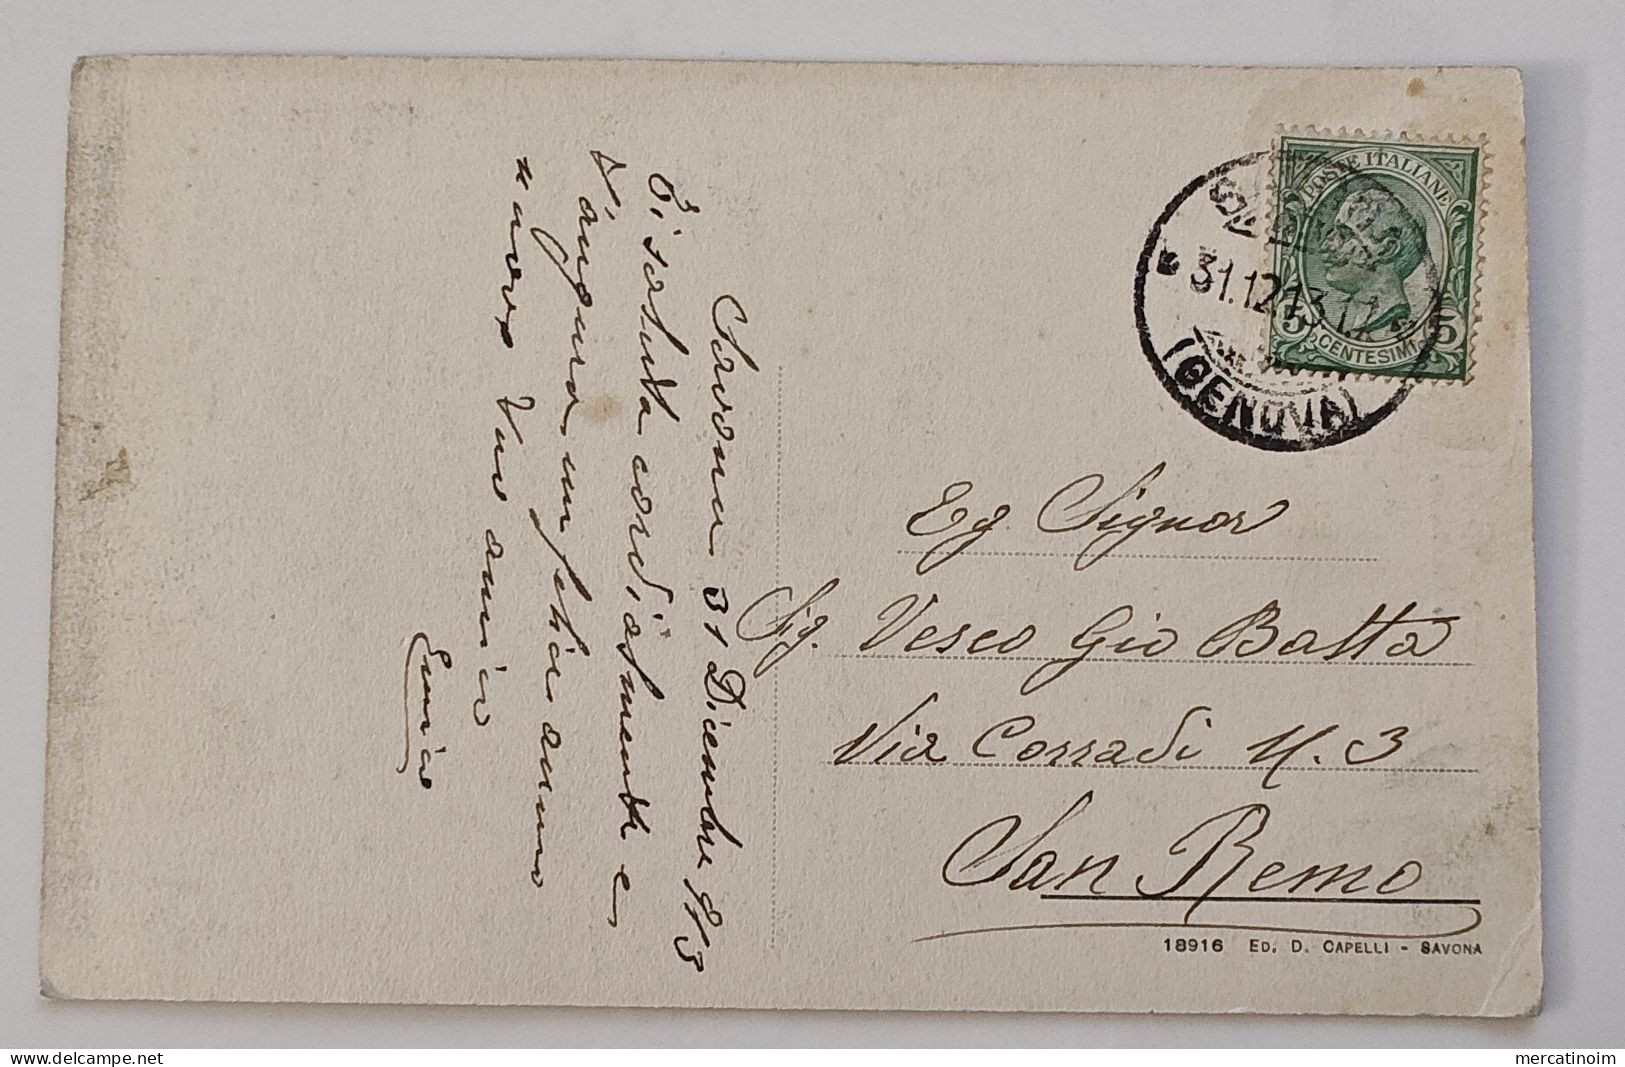 Savona 31 Dicembre 913
Ti saluta cordialmente e
t'augura un felice anno
nuovo Tuo amico
Enrico
POSTE ITALIANE
5 CENTESIMI 5
31.12.13
(GENOVA)
Eg Signor
Sig. Vesco Gio Batta
Via Corradi N. 3
San Remo
18916 ED. D. CAPELLI - SAVONA
mercatinoim